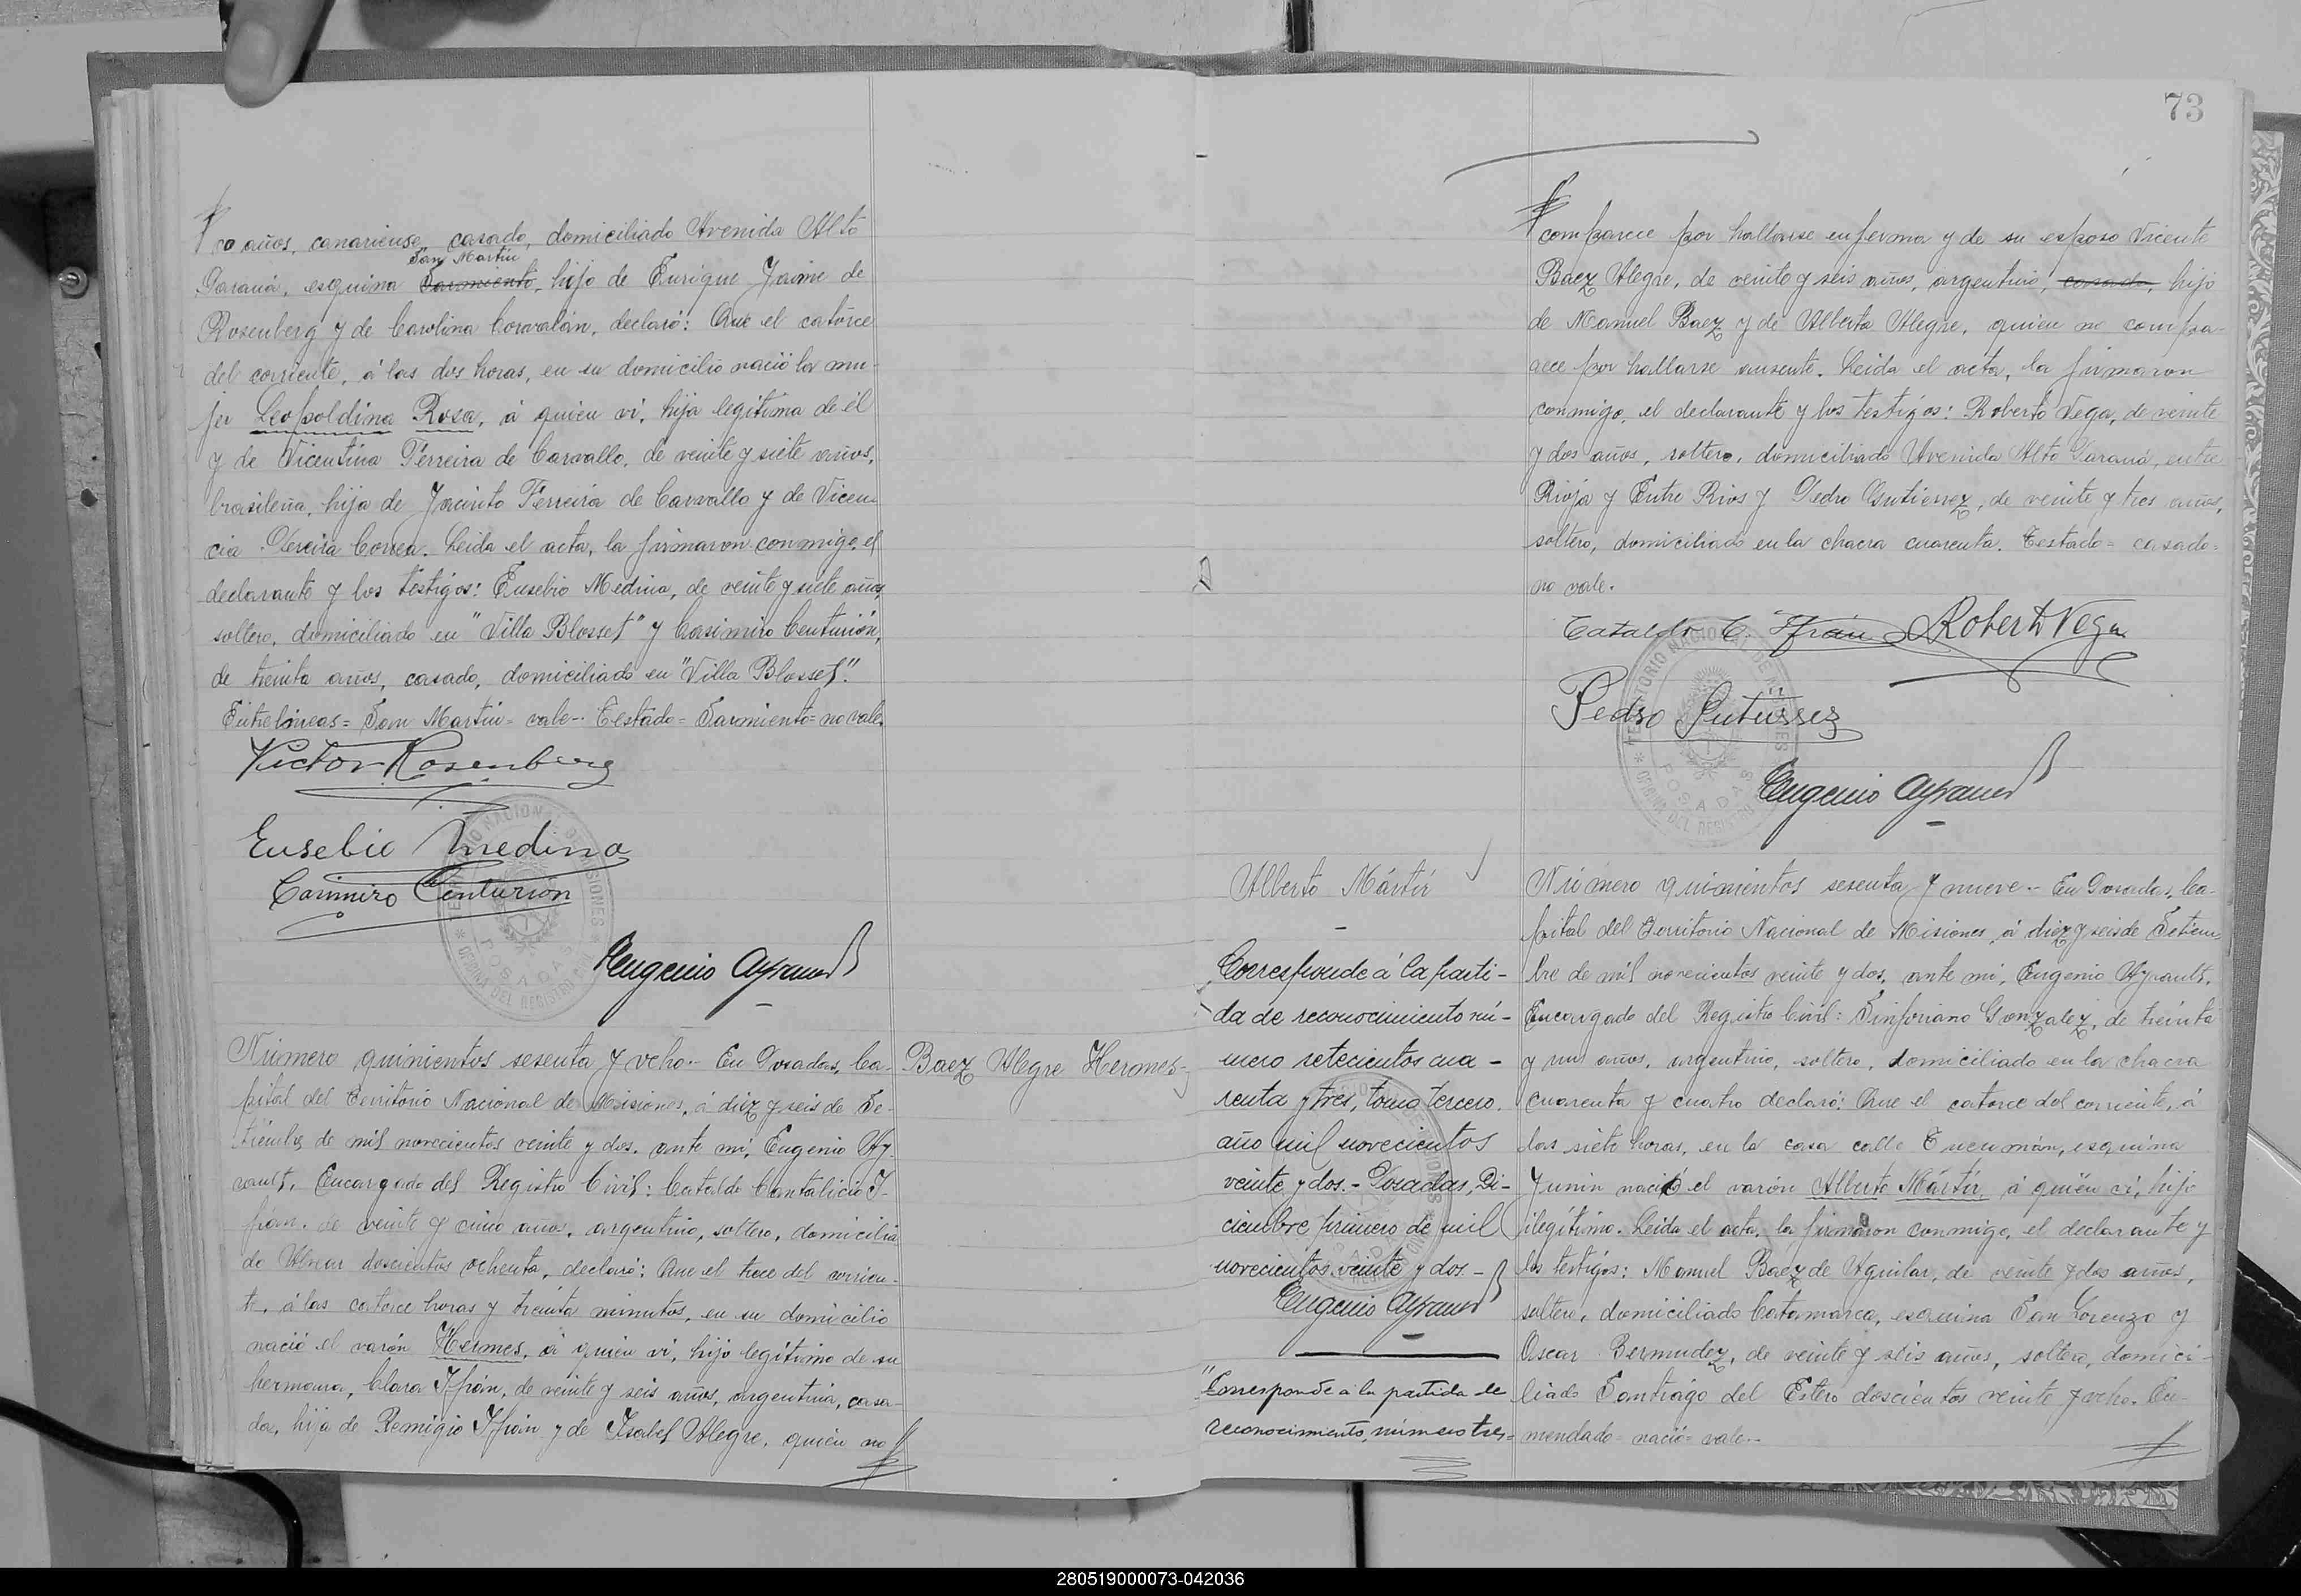 co años, canariense, casado, domiciliado Avenida Alto
San Martin
Paraná, esquina Sarmiento, hijo de Enrique Jaime de
Rosenberg y de Carolina Corvalán, declaró: Que el catorce
del corriente, á las dos horas, en su domicilio nació la mu-
jer Leopoldina Rosa, á quien vi, hija legítima de él
y de Vicentina Ferreira de Carvallo, de veinte y siete años,
brasileña, hija de Jacinto Ferreira de Carvallo y de Vicen-
cia Pereira Correa. Leida el acta, la firmaron conmigo, el
declarante y los testigos: Eusebio Medina, de veinte y siete años,
soltero, domiciliado en "Villa Blosset" y Casimiro Centurión,
de treinta años, casado, domiciliado en "Villa Blosset".
Entrelíneas = San Martín = vale - Testado = Sarmiento = no vale.
Victor Rosenberg
Eusebio Medina
Casimiro Centurion
Eugenio Ayrault
Baez Alegre Hermes-
Número quinientos sesenta y ocho.- En Posadas, Ca-
pital del Territorio Nacional de Misiones, á diez y seis de Se-
tiembre de mil novecientos veinte y dos, ante mí, Eugenio Ay-
rault, Encargado del Registro Civil: Cataldo Cantalicio I-
frán, de veinte y cinco años, argentino, soltero, domicilia
do Alvear doscientos ochenta, declaró: Que el trece del corrien-
te, á las catorce horas y treinta minutos, en su domicilio
nació el varón Hermes, á quien vi, hijo legítimo de su
hermana, Clara Ifrán, de veinte y seis años, argentina, casa-
da, hija de Remigio Ifrán y de Isabel Alegre, quien no
73
comparece por hallarse enferma y de su esposo Vicente
Baez Alegre, de veinte y seis años, argentino, casado, hijo
de Manuel Baez y de Alberta Alegre, quien no compa-
rece por hallarse ausente. Leida el acta, la firmaron
conmigo, el declarante y los testigos: Roberto Vega, de veinte
y dos años, soltero, domiciliado Avenida Alto Paraná, entre
Rioja y Entre Rios y Pedro Gutiérrez, de veinte y tres años,
soltero, domiciliado en la chacra cuarenta. Testado = casado =
no vale.
Cataldo C. Ifrán Roberto Vega
Pedro Gutierrez
Eugenio Ayrault
Alberto Mártir
Corresponde á la parti-
da de reconocimiento nú-
mero setecientos cua-
renta y tres, tomo tercero,
año mil novecientos
veinte y dos.- Posadas, Di-
ciembre primero de mil
novecientos veinte y dos.-
Eugenio Ayrault
"Corresponde a la partida de
reconocimiento, número tres=
Número quinientos sesenta y nueve.- En Posadas, Ca-
pital del Territorio Nacional de Misiones, á diez y seis de Setiem-
bre de mil novecientos veinte y dos, ante mí, Eugenio Ayrault,
Encargado del Registro Civil: Sinforiano Gonzalez, de treinta
y un años, argentino, soltero, domiciliado en la chacra
cuarenta y cuatro declaró: Que el catorce del corriente, á
las siete horas, en la casa calle Tucumán, esquina
Junin nació el varón Alberto Mártir, á quién vi, hijo
ilegítimo. Leida el acta, la firmaron conmigo, el declarante y
los testigos: Manuel Baez de Aguilar, de veinte y dos años,
soltero, domiciliado Catamarca, esquina San Lorenzo y
Oscar Bermudez, de veinte y seis años, soltero, domici-
liado Santiago del Estero doscientos veinte y ocho. En-
mendado = nació = vale.-
280519000073-042036